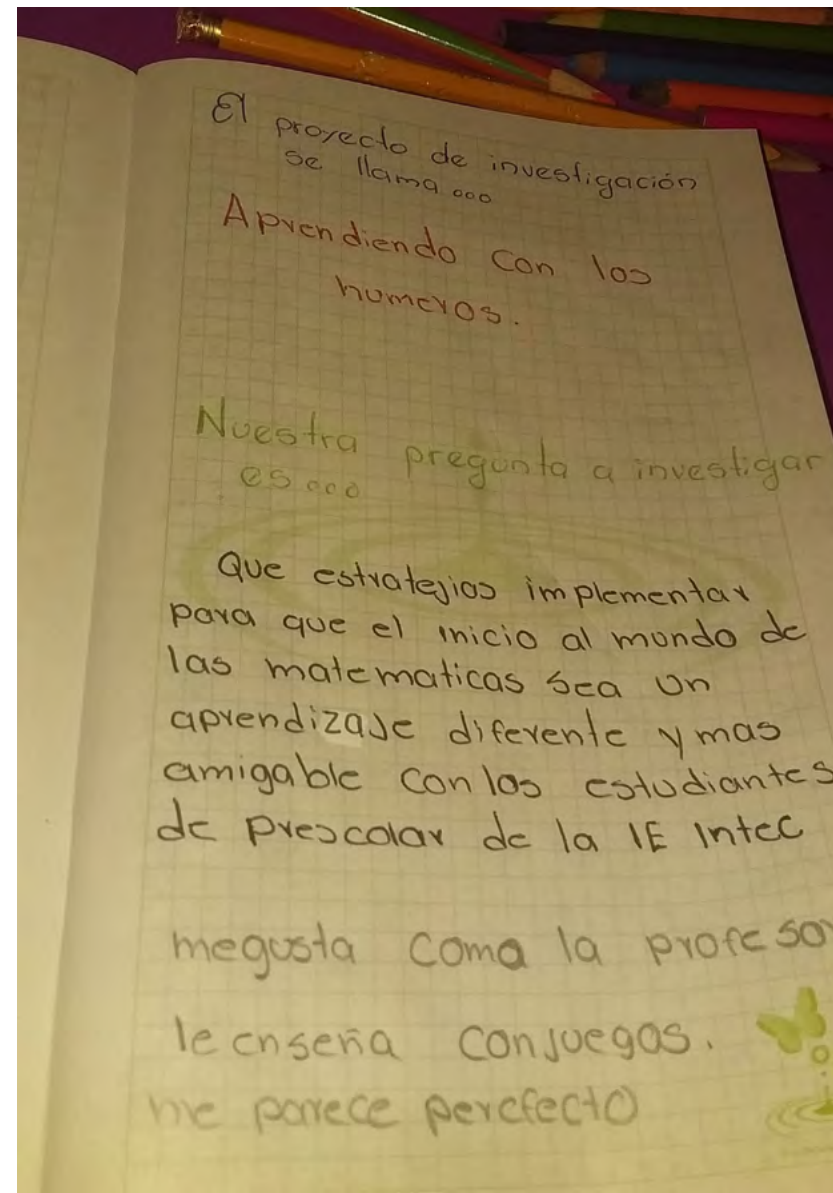 El proyecto de investigación
se llama...
Aprendiendo con los
numeros.
Nuestra pregunta a investigar
es...
Que estratejias implementar
para que el inicio al mundo de
las matematicas sea un
aprendizaje diferente y mas
amigable con los estudiantes
de prescolar de la IE Intec
megusta coma la profesor
le enseña conjuegos.
me parece perefecto